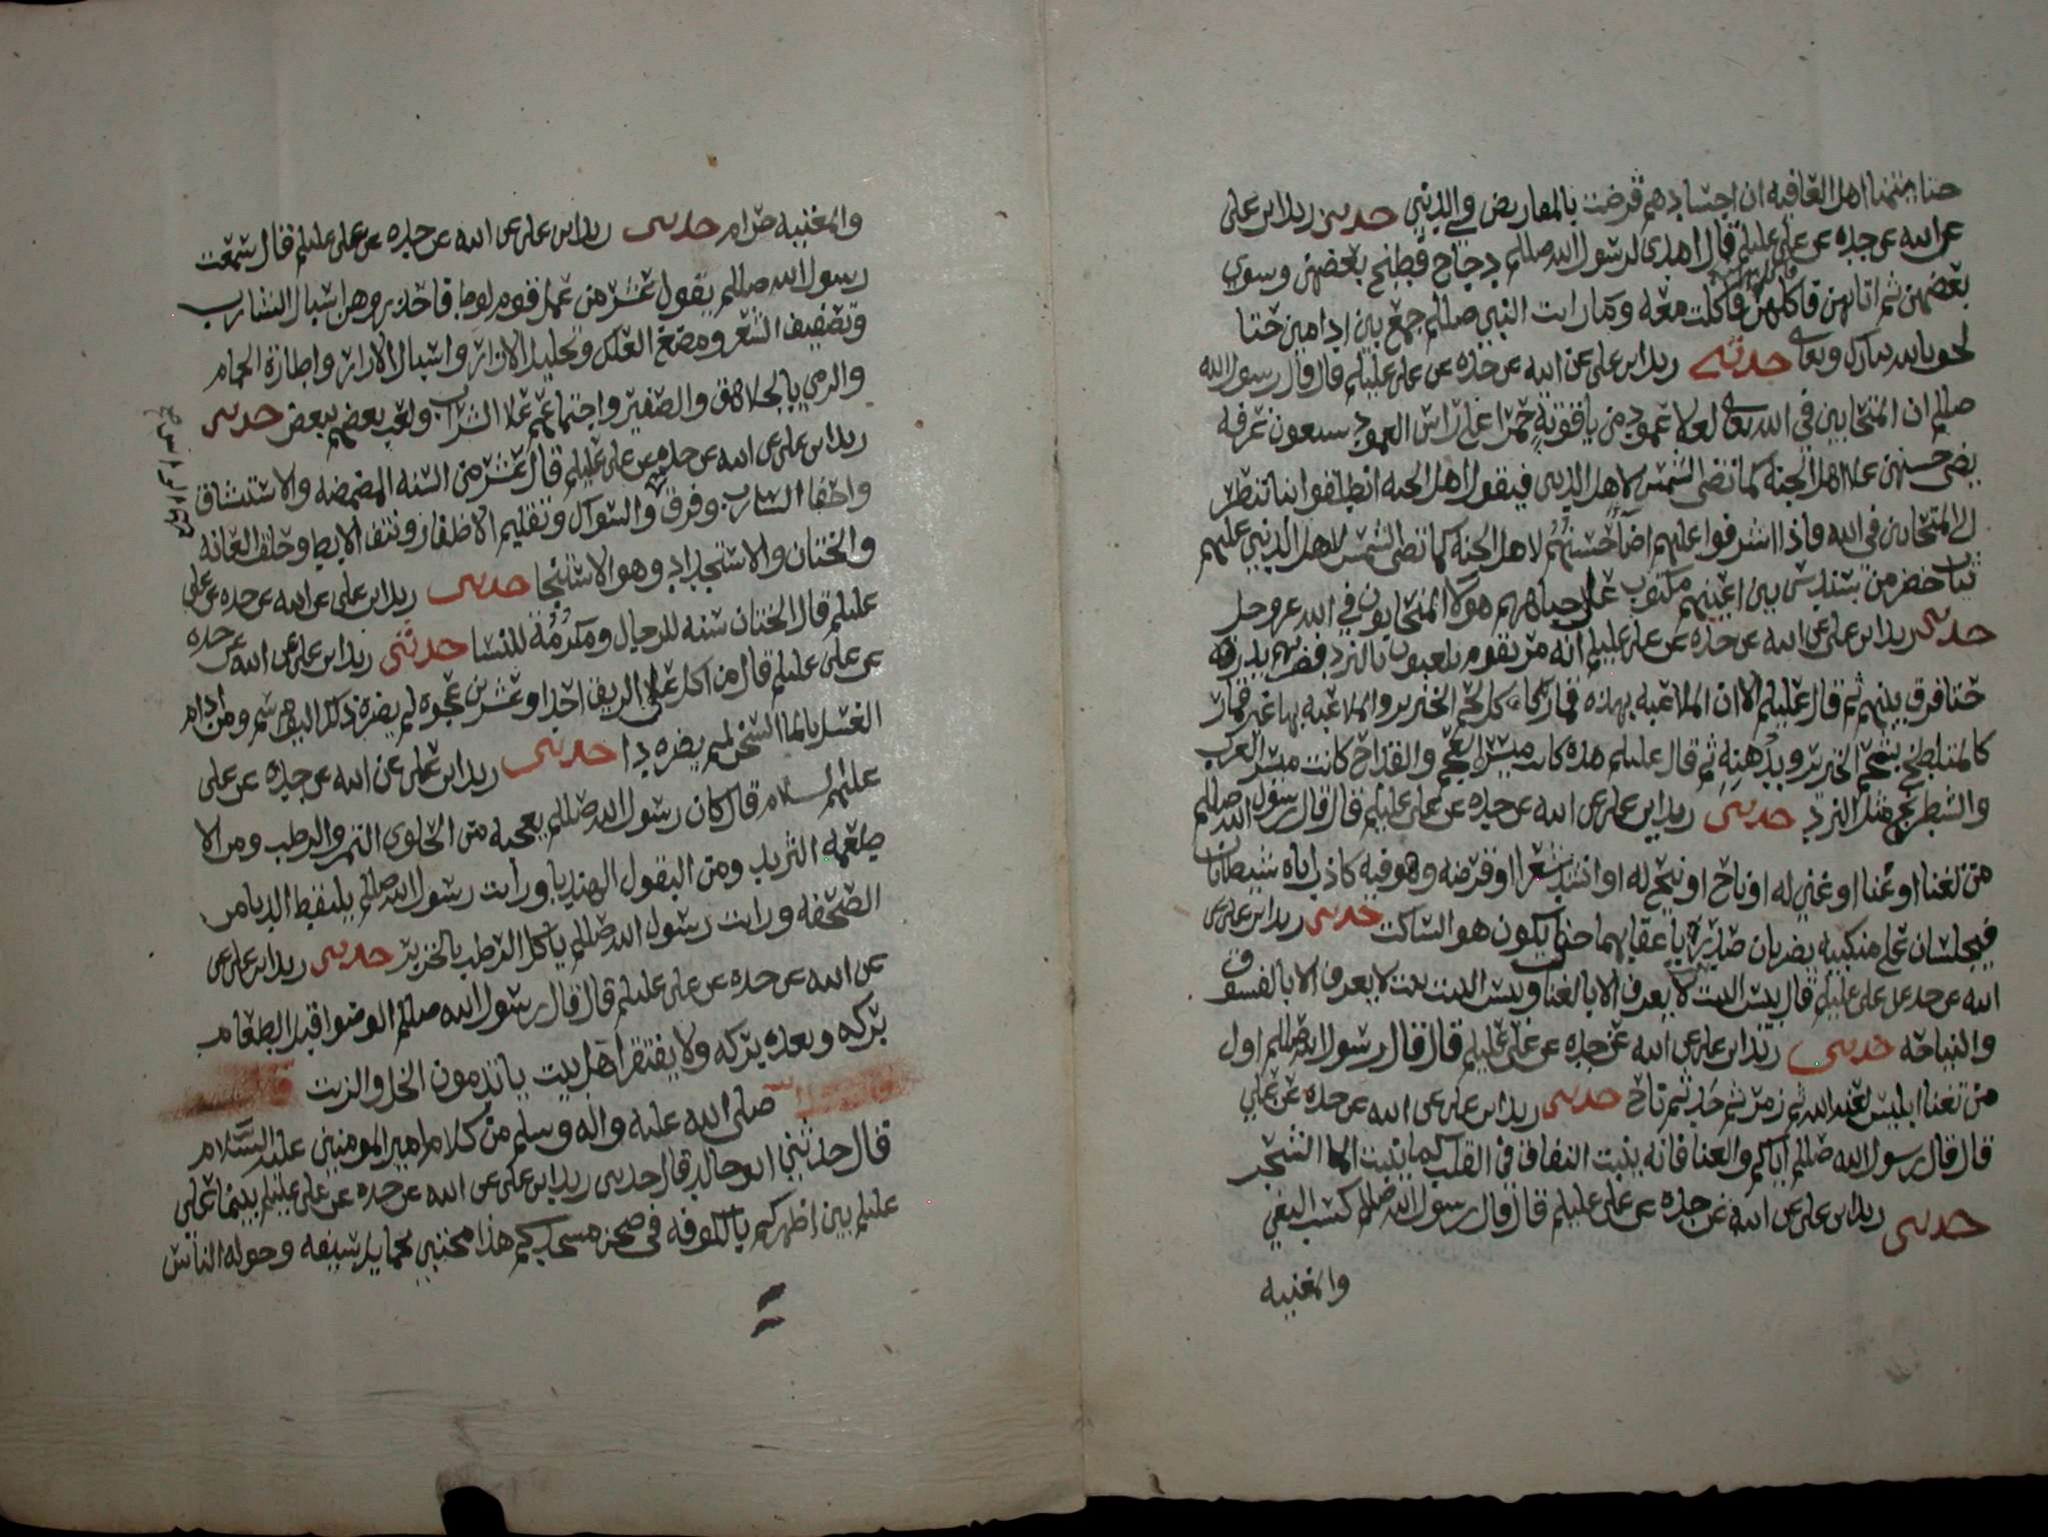 حتا يتمنا اهل العافيه ان اجسادهم قرضت بالمقاريض في الدنيى حدىىى زيد ابن على
عن ابيه عن جده عن على عليلم قال اهدى لرسول الله صللم دجاج فطبخ بعضهن وسوي
بعضهن ثم اتا بهن فاكلهن فاكلت معه وما رايت النبي صللم جمع بين ادامين حتا
لحق بالله تبارك وتعالى حدثنى زيد ابن على عن ابيه عن جده عن على عليلم قال قال رسول الله
صللم ان المتحابين في الله تعالى لعلا عمود من ياقوتة حمرا على راس العمود سبعون غرفه
يضى حسنهن علا اهل الجنة كما تضى الشمس لاهل الدنيى فيقول اهل الجنه انطلقوا بنا ننظر
الى المتحابين في الله فاذا اشرفوا عليهم اضا حسنهم لاهل الجنة كما تضى الشمس لاهل الدنيى عليهم
ثياب خضر من سندس بين اعينهم مكتوب على جباههم هولا المتحابون في الله عز وجل
حدىىى زيد ابن على عن ابيه عن جده عن على عليلم انه مر بقوم يلعبون بالنرد فضربهم بدرته
حتا فرق بينهم ثم قال عليلم الا ان الملاعبه بهذه قمارا كاكل لحم الخنزير والملاعبه بها غير قمار
كالمتلطخ بشحم الخنزير وبدهنه ثم قال عليلم هذه كانت ميسر العجم والقداح كانت ميسر العرب
والشطرنج مثل النرد حدىىى زيد ابن على عن ابيه عن جده عن على عليلم قال قال رسول الله صللم
من تغنا او غنا او غني له او ناح او نيح له او انشد شعرا او قرضه وهو فيه كاذب اتاه شيطانان
فيجلسان على منكبيه يضربان صدره باعقابهما حتى يكون هو الساكت حدىىى زيد ابن على عن
ابيه عن جده عن على عليلم قال بيس البيت بيت لا يعرف الا بالغنا وبيس البيت بيت لا يعرف الا بالفسوق
والنياحه حدىىى زيد ابن على عن ابيه عن جده عن على عليلم قال قال رسول الله صللم اول
من تغنا ابليس لعنه الله ثم زمر ثم حدا ثم ناح حدىىى زيد ابن على عن ابيه عن جده عن على
قال قال رسول الله صللم اياكم والغنا فانه ينبت النفاق في القلب كما ينبت الما الشجر
حدىىى زيد ابن على عن ابيه عن جده عن على عليلم قال قال رسول الله صللم كسب البغي
والمغنيه
والمغنيه حرام حدىىى زيد ابن على عن ابيه عن جده عن على عليلم قال سمعت
رسول الله صللم يقول عشر من عمل قوم لوط فاحذروهن اسبال الشارب
وتصفيف الشعر ومضغ العلك وتحليل الازرار واسبال الازار واطارة الحمام
والرمي بالجلاهق والصفير واجتماعهم علا الشراب ولعب بعضهم ببعض حدىىى
زيد ابن على عن ابيه عن جده عن على عليلم قال عشر من السنه المضمضه والاستنشاق
واحفا الشارب وفرق والسواك وتقليم الاظفار ونتف الابط وحلق العانه
والختان والاستحداد وهو الاستنجا حدىىى زيد ابن على عن ابيه عن جده عن على
عليلم قال الختان سنه للرجال ومكرمة للنسا حدثنى زيد ابن على عن ابيه عن جده
عن على عليلم قال من اكل على الريق احدا وعشرين عجوه لم يضره ذلك اليوم سم ومن ادام
الغسل بالما السخن لم يضره دا حدىىى زيد ابن على عن ابيه عن جده عن على
عليهم السلام قال كان رسول الله صللم يعجبه من الحلوى التمر والرطب ومن الا
طعمه الثريد ومن البقول الهندبا ورايت رسول الله صللم يلتقط الدبا من
الصحفه ورايت رسول الله صللم ياكل الرطب بالخربز حدىىى زيد ابن على عن
عن ابيه عن جده عن على عليلم قال قال رسول الله صللم الوضوا قبل الطعام
بركه وبعده بركه ولا يفتقر اهل بيت ياتدمون الخل والزيت
صلى الله عليه واله وسلم من كلام امير المومنين عليه السلام
قال حدثني ابو خالد قال حدىىى زيد ابن على عن ابيه عن جده عن على عليلم بينما على
عليلم بين اظهركم بالكوفه في صحن مسجدكم هذا محتبي بحمايد سيفه وحوله الناس